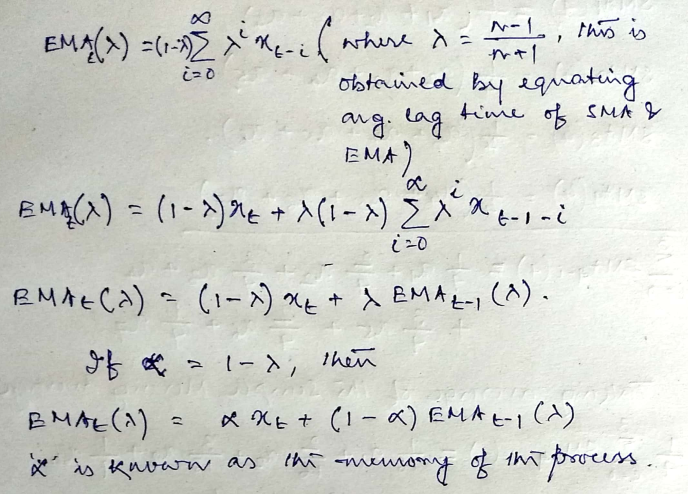 EMA_t(λ) = (1-λ) ∑_{i=0}^{∞} λ^i x_{t-i} ( where λ = \frac{n-1}{n+1}, this is
obtained by equating
avg. lag time of SMA &
EMA )
EMA_t(λ) = (1-λ) x_t + λ(1-λ) ∑_{i=0}^{∞} λ^i x_{t-1-i}
EMA_t(λ) = (1-λ) x_t + λ EMA_{t-1} (λ).
If α = 1-λ, then
EMA_t(λ) = α x_t + (1-α) EMA_{t-1} (λ)
'α' is known as the memory of the process.